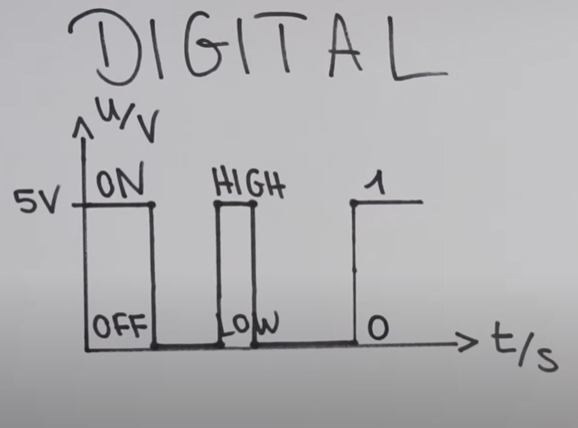 DIGITAL
u/V
5V ON HIGH 1
OFF LOW 0
t/s